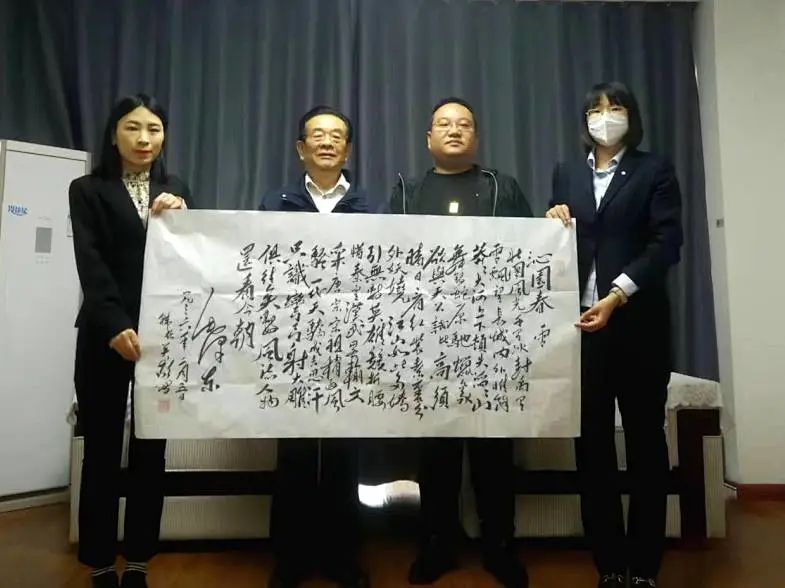 沁园春 雪
北国风光千里冰封万里
雪飘望长城内外惟余
莽々大河上下顿失滔々山
舞银蛇原驰蜡象
欲与天公试比高须
晴日看红装素裹分
外妖娆江山如此多娇
引无数英雄竞折腰
惜秦皇汉武略输文
采唐宗宋祖稍逊风
骚一代天骄成吉思汗
只识弯弓射大雕
俱往矣数风流人物
还看今朝
毛泽东